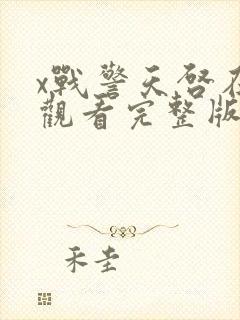 x戰警天啓在
觀看完整版
禾圭